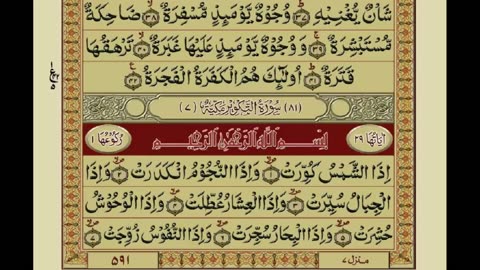 شَاْنٌ يُّغْنِيْهِ ﴿۳۷﴾ وُجُوْهٌ يَّوْمَئِذٍ مُّسْفِرَةٌ ﴿۳۸﴾ ضَاحِكَةٌ
مُّسْتَبْشِرَةٌ ﴿۳۹﴾ وَوُجُوْهٌ يَّوْمَئِذٍ عَلَيْهَا غَبَرَةٌ ﴿۴۰﴾ تَرْهَقُهَا
قَتَرَةٌ ﴿۴۱﴾ اُولٰٓئِكَ هُمُ الْكَفَرَةُ الْفَجَرَةُ ﴿۴۲﴾
(۸۱) سُوْرَةُ التَّكْوِيْرِ مَكِّيَّةٌ (۷)
اٰيَاتُهَا ۲۹ بِسْمِ اللّٰهِ الرَّحْمٰنِ الرَّحِيْمِ رُكُوْعُهَا ۱
اِذَا الشَّمْسُ كُوِّرَتْ ﴿۱﴾ وَاِذَا النُّجُوْمُ انْكَدَرَتْ ﴿۲﴾ وَاِذَا
الْجِبَالُ سُيِّرَتْ ﴿۳﴾ وَاِذَا الْعِشَارُ عُطِّلَتْ ﴿۴﴾ وَاِذَا الْوُحُوْشُ
حُشِرَتْ ﴿۵﴾ وَاِذَا الْبِحَارُ سُجِّرَتْ ﴿۶﴾ وَاِذَا النُّفُوْسُ زُوِّجَتْ ﴿۷﴾
منزل ۷
۵۹۱